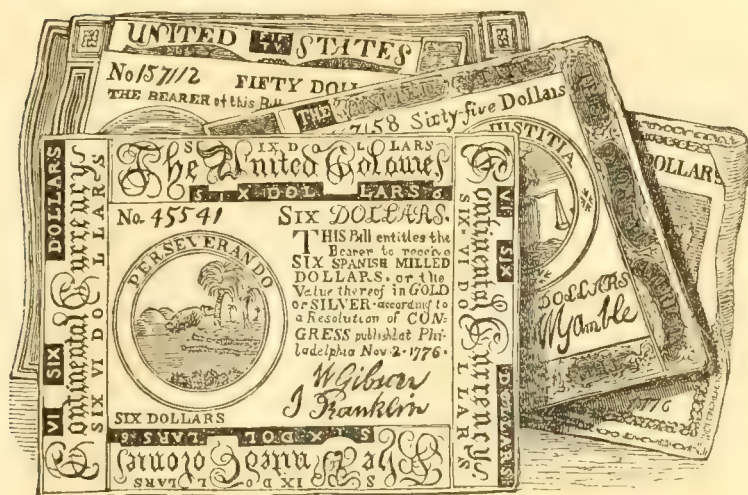 UNITED FIFTY STATES
No 157112 FIFTY DOLL
THE BEARER of this Bill
THE UNITED STATES
7158 Sixty-five Dollars
JUSTITIA
DOLLARS
DOLLARS
WGamble
1776
S IX D O L LARS
The United Colonies
S I X DOL LARS 6
No. 45541 SIX DOLLARS.
THIS Bill entitles the
Bearer to receive
SIX SPANISH MILLED
DOLLARS, or the
Value thereof in GOLD
or SILVER according to
a Resolution of CON-
GRESS publishd at Phi-
ladelphia Nov. 2. 1776.
PERSEVERANDO
W Gibson
J Franklin
SIX DOLLARS
S I X DOL LARS 6
The United Colonies
S IX D O L LARS
VI SIX DOLLARS
Continental Currency
SIX VI DO L LAR-S
VI SIX DOLLARS
Continental Currency
SIX-VI DO L LARS